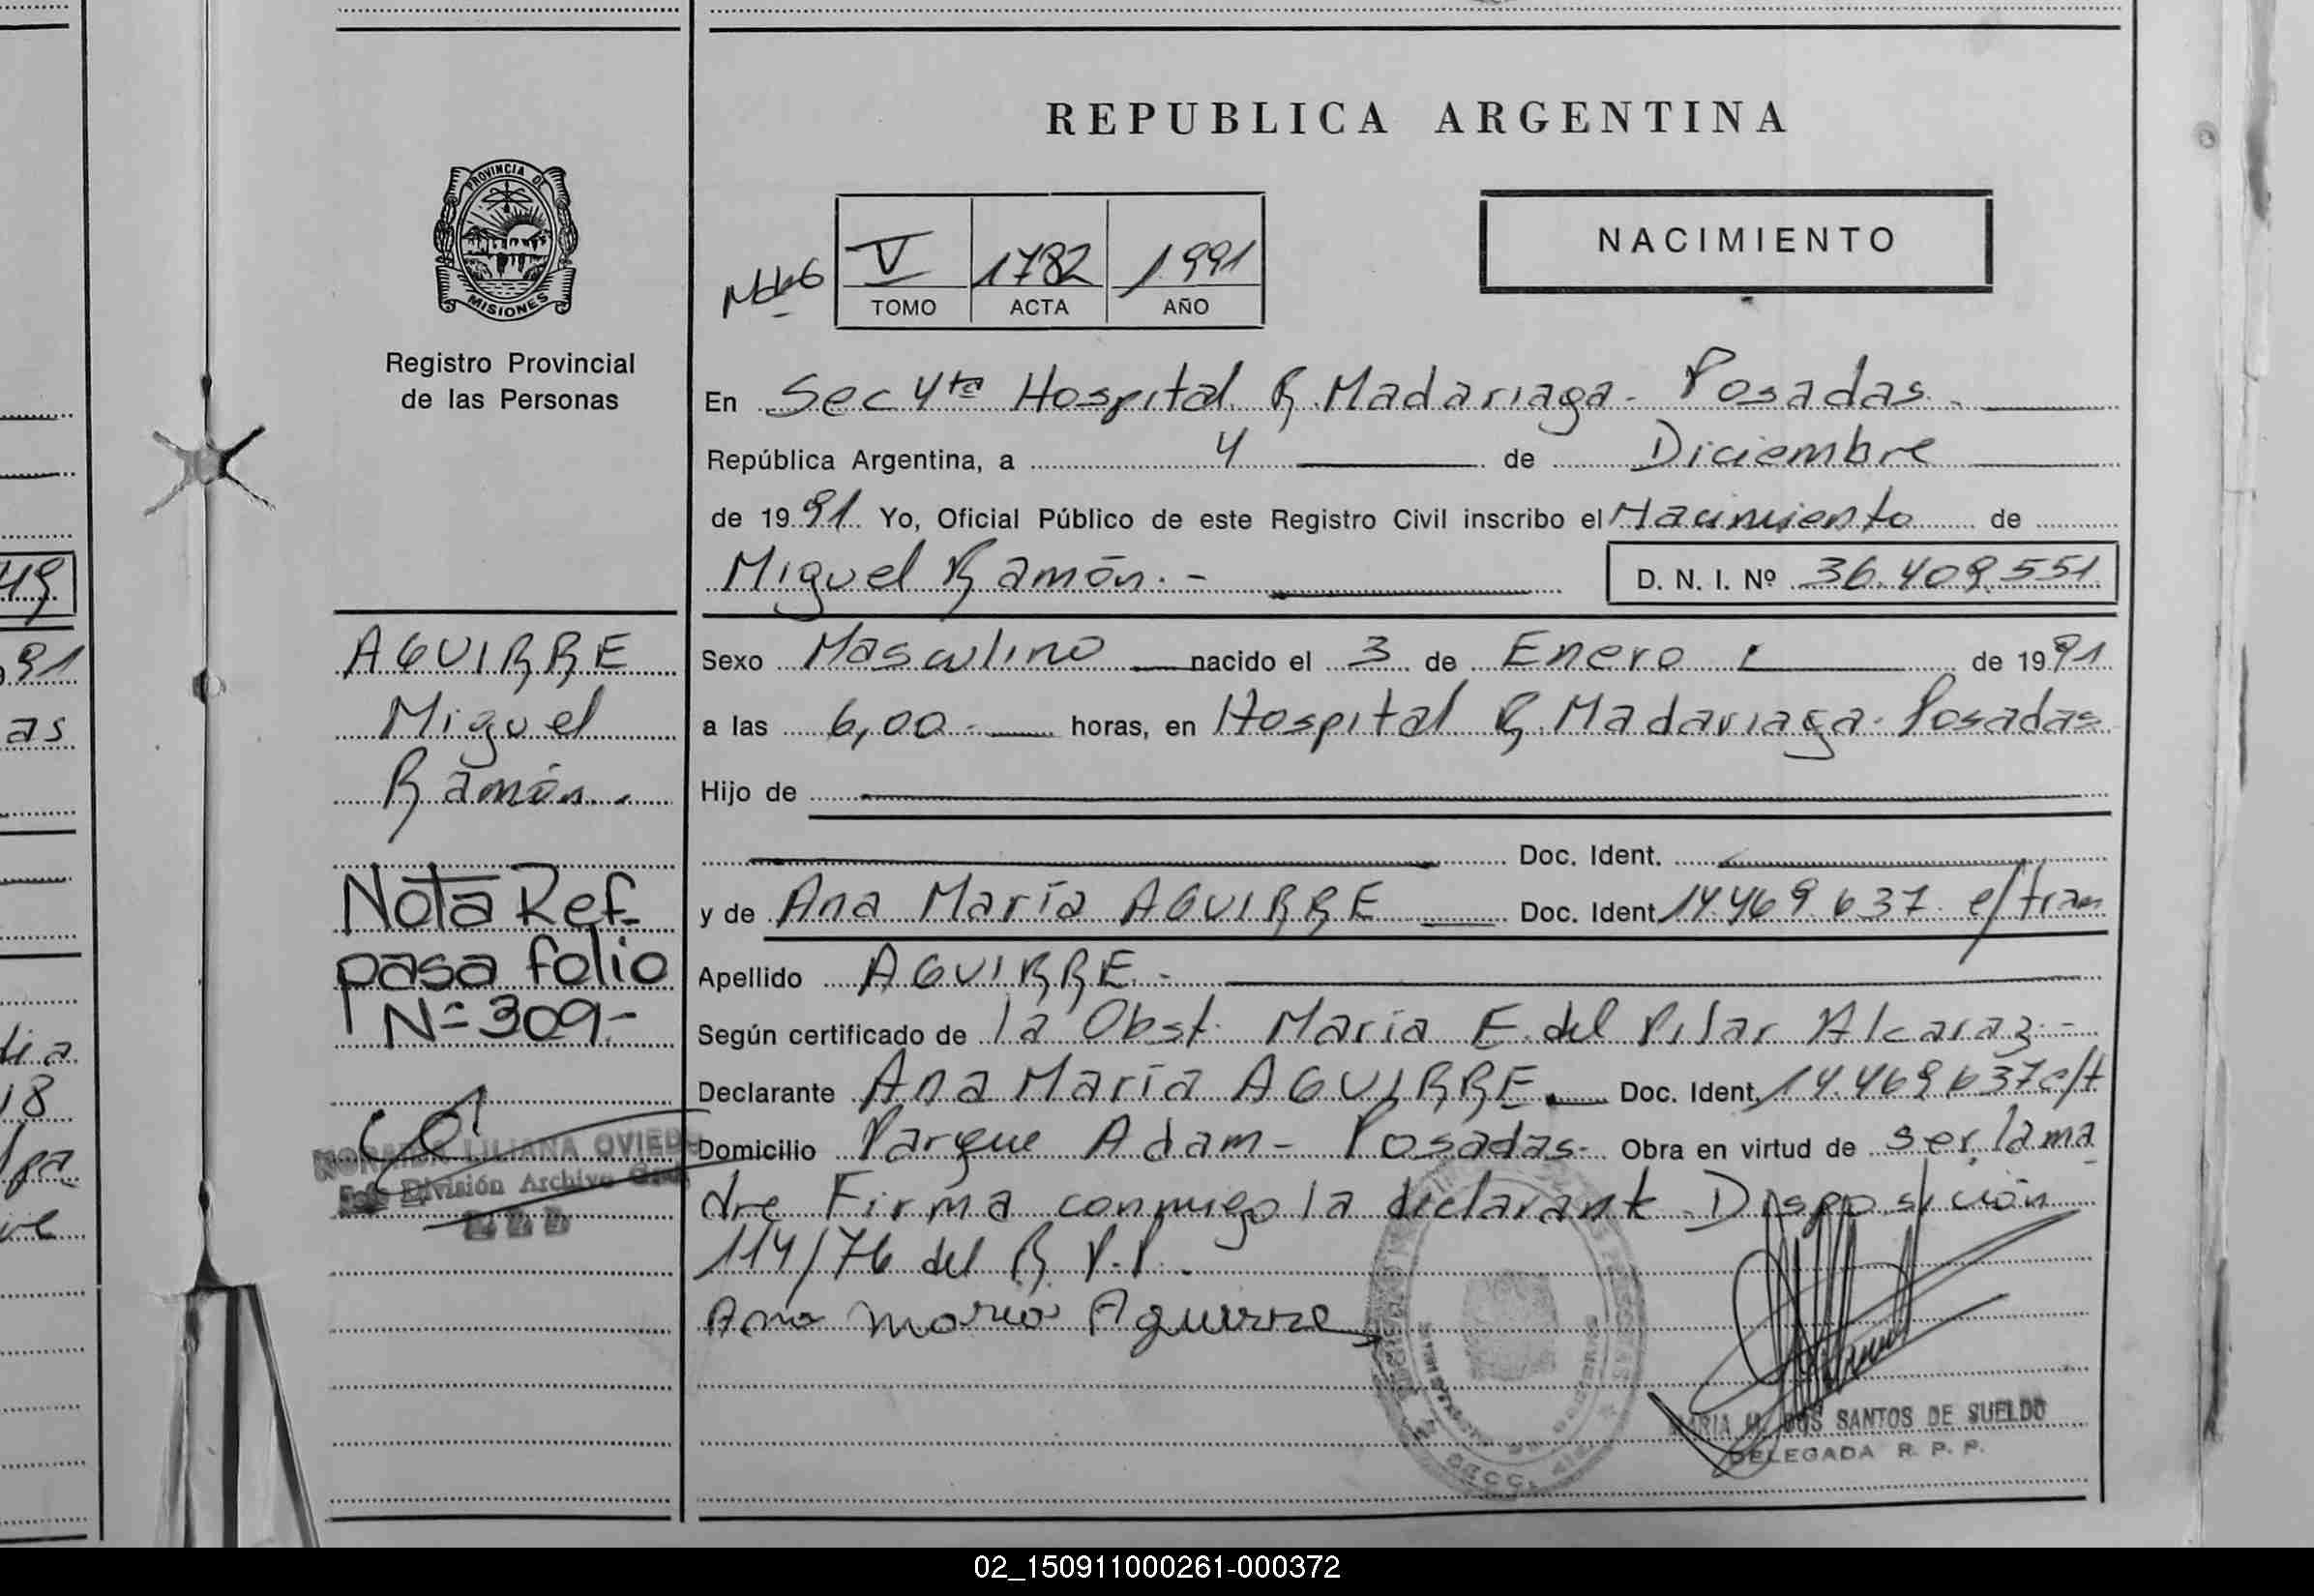 REPUBLICA ARGENTINA
PROVINCIA DE
MISIONES
Registro Provincial
de las Personas
NACIMIENTO
V 1782 1991
TOMO ACTA AÑO
En Sec 4ta Hospital R. Madariaga - Posadas.
República Argentina, a 4 de Diciembre
de 1991. Yo, Oficial Público de este Registro Civil inscribo el Nacimiento de
Miguel Ramón.- D. N. I. Nº 36.409.551
AGUIRRE
Miguel
Ramón.
Nota Ref.
pasa folio
Nº 309.-
NORAIDA LILIANA OVIEDO
División Archivo Gral
Sexo Masculino nacido el 3 de Enero de 1991
a las 6,00.- horas, en Hospital R. Madariaga - Posadas
Hijo de
Doc. Ident.
y de Ana María AGUIRRE Doc. Ident. 14.469.637 e/tram
Apellido AGUIRRE.-
Según certificado de la Obst. María E. del Pilar Alcaraz.-
Declarante Ana María AGUIRRE. Doc. Ident. 14.469.637 e/t
Domicilio Parque Adam - Posadas. Obra en virtud de ser la ma
dre Firma conmigo la declarante. Disposición
114/76 del R. P. P.
Ana Maria Aguirre
MARIA M. DOS SANTOS DE SUELDO
DELEGADA R. P. P.
49
91
as
dia
18
02_150911000261-000372